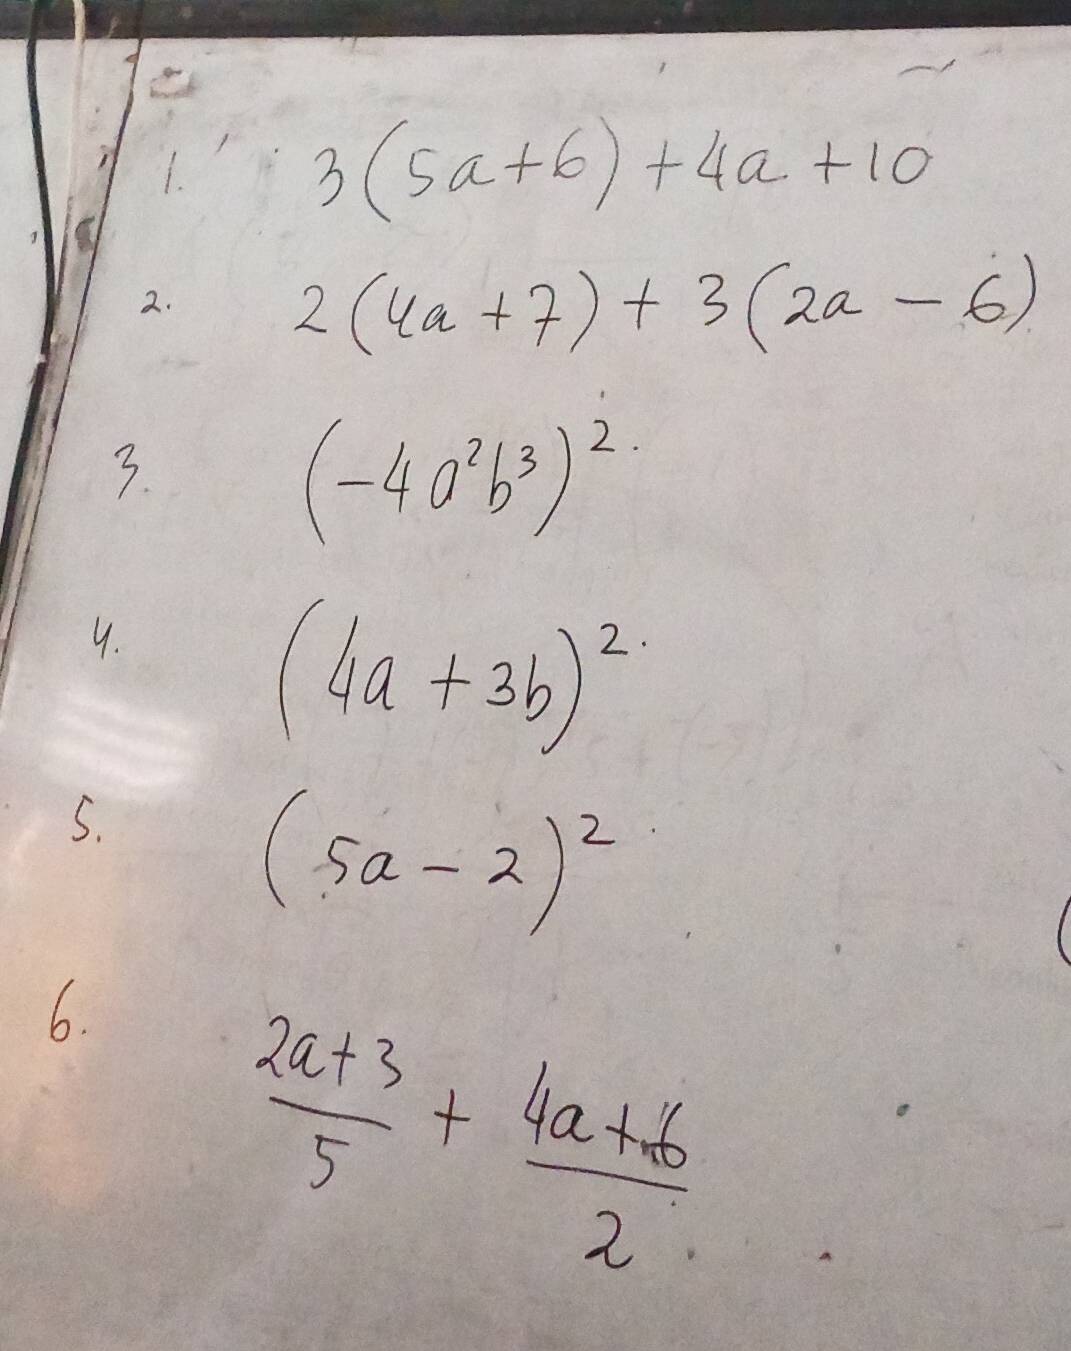 1. 3(5a+6)+4a+10
2. 2(4a+7)+3(2a-6)
3. (-4a²b³)²
4. (4a+3b)²
5. (5a-2)²
6. \frac{2a+3}{5} + \frac{4a+6}{2}